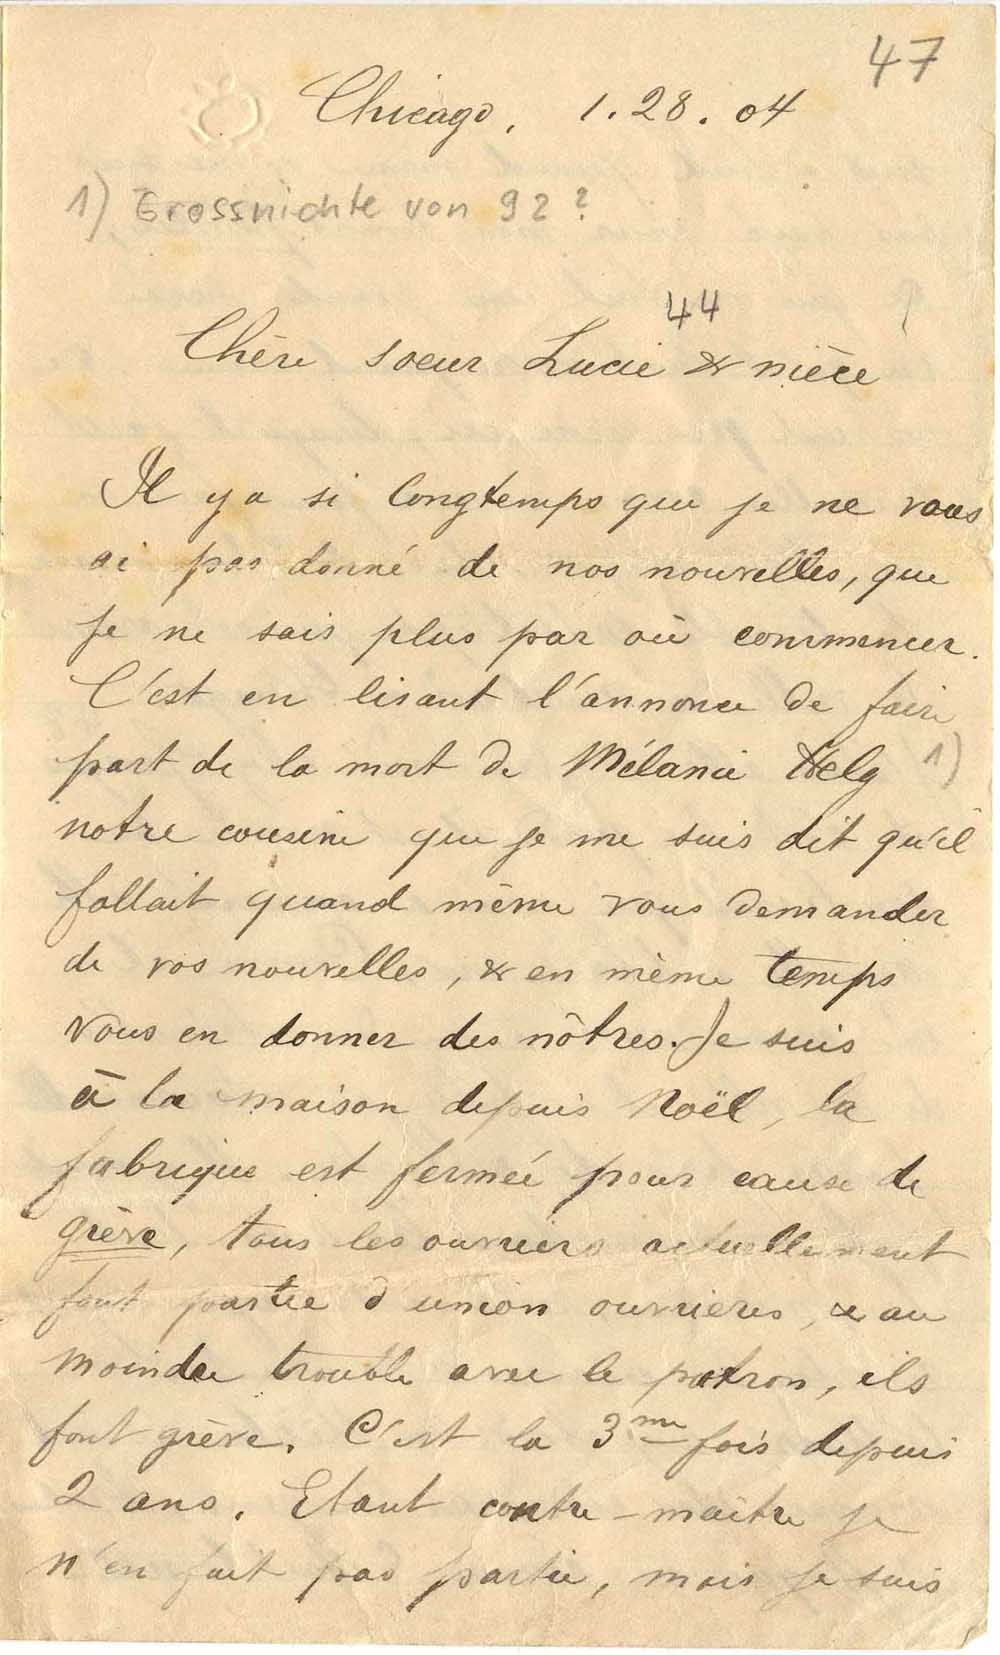 47
Chicago, 1.28.04
1) Grossnichte von 92?
44
Chère soeur Lucie & nièce
Il y a si longtemps que je ne vous
ai pas donné de nos nouvelles, que
je ne sais plus par où commencer.
C'est en lisant l'annonce de faire
part de la mort de Mélanie Helg 1)
notre cousine que je me suis dit qu'il
fallait quand même vous demander
de vos nouvelles, & en même temps
vous en donner des nôtres. Je suis
à la maison depuis Noël, la
fabrique est fermée pour cause de
grève, tous les ouvriers actuellement
font partie d'union ouvrières, & au
moindre trouble avec le patron, ils
font grève. C'est la 3me fois depuis
2 ans. Etant contre-maître je
n'en fait pas partie, mais je suis